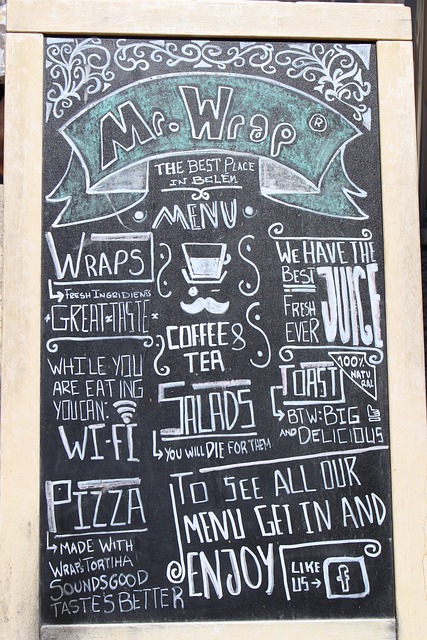 Mr. Wrap ®
THE BEST PLACE
IN BELÉM
MENU
WRAPS
FRESH INGRIDIENTS
GREAT TASTE
WHILE YOU
ARE EATING
YOU CAN:
WI-FI
PIZZA
MADE WITH
WRAPS TORTIHA
SOUNDS GOOD
TASTE'S BETTER
COFFEE &
TEA
SALADS
YOU WILL DIE FOR THEM
WE HAVE THE
BEST
FRESH
EVER
JUICE
100%
NATU
RAL
TOAST
BTW: BIG
AND DELICIOUS
TO SEE ALL OUR
MENU GET IN AND
ENJOY
LIKE
US → f